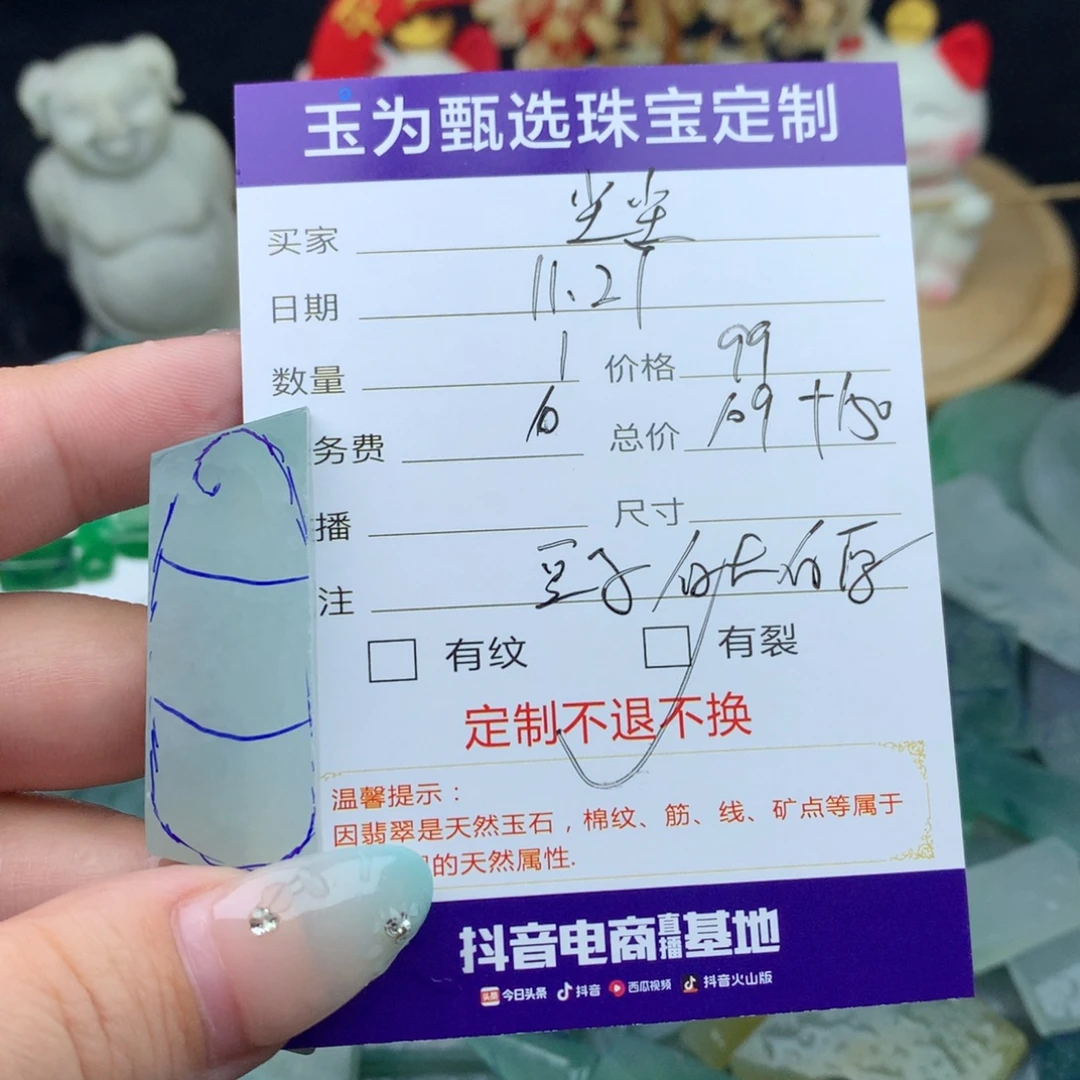 玉为甄选珠宝定制
买家
日期 11.27
数量 1 价格 99
务费 10 总价 109+150
播 尺寸
注 豆子
有纹 有裂
定制不退不换
温馨提示：
因翡翠是天然玉石，棉纹、筋、线、矿点等属于
的天然属性.
抖音电商直播基地
头条 今日头条 抖音 西瓜视频 抖音火山版